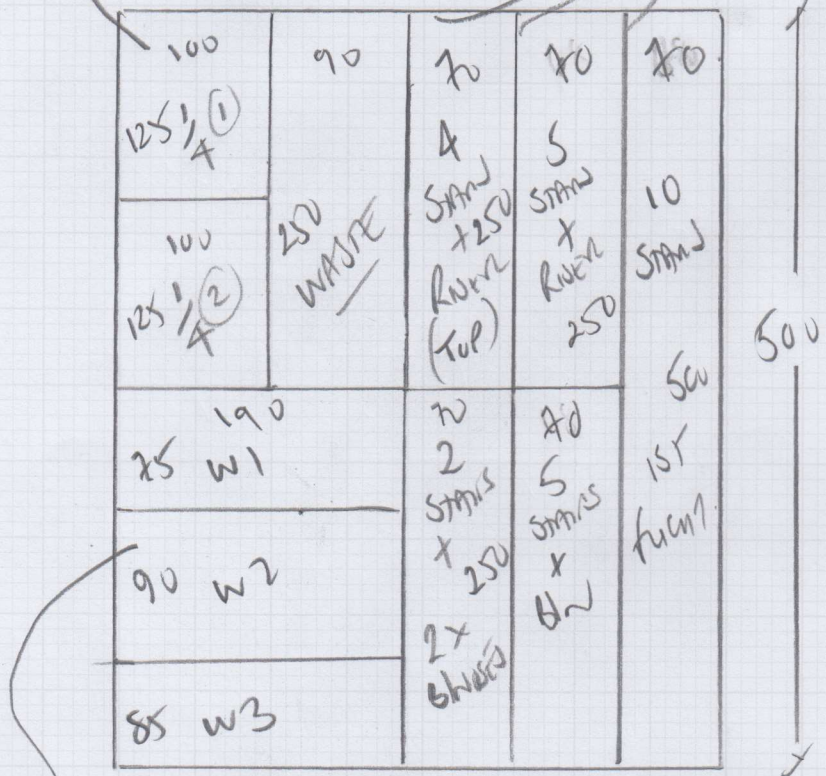 100
125 1/4 ①
100
125 1/4 ②
90
250
WASTE
70
4
STAIR
+ 250
RIVER
(TOP)
70
5
STAIR
+
RIVER
250
70
10
STAIR
500
1ST
FLIGHT
500
190
75 W1
90 W2
85 W3
70
2
STAIRS
+
250
2 x
70
5
STAIRS
+